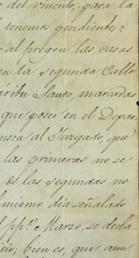 del vínculo, para la
tenemos pendiente;
al pregon las casas
en la segunda Calle
píritu Santo, marcadas
que posee en el Depar
al Juzgado, que
las primeras no se
de las segundas no
mismo dia señalado
pp.º Marzo, se decla
bien es, que aun